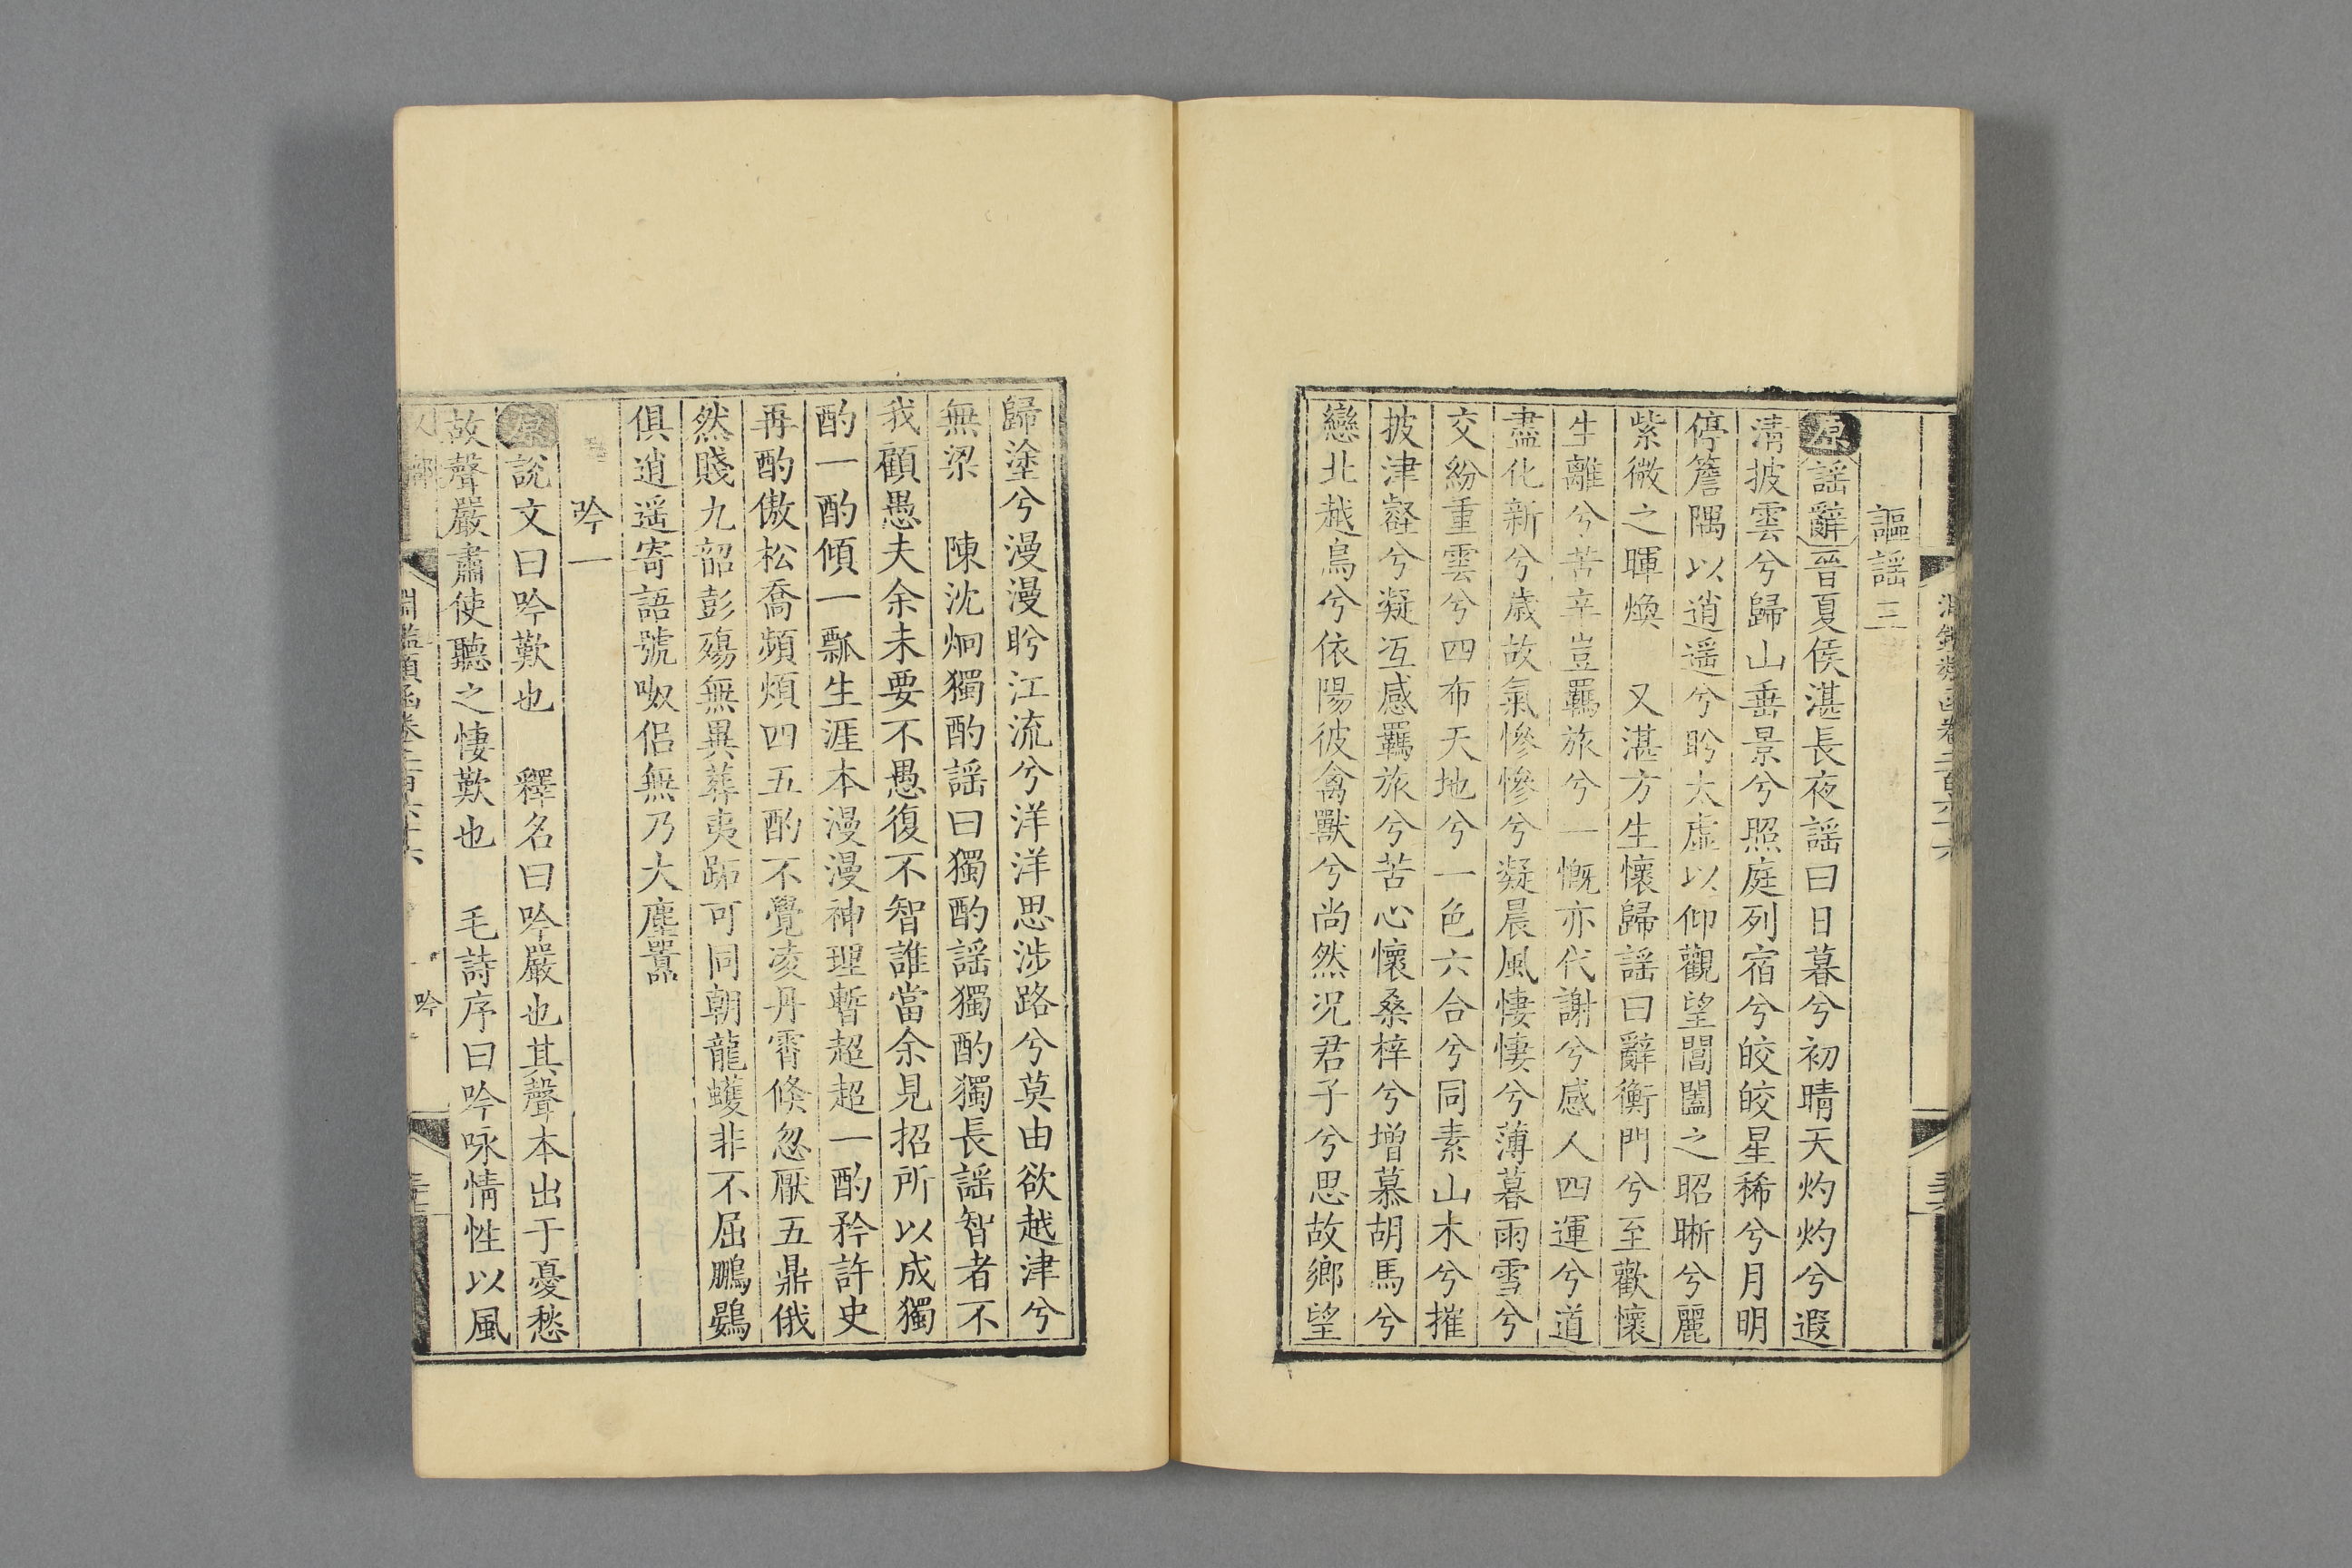 謳謡三
原謡辭晉夏侯湛長夜謡曰日暮兮初晴天灼灼兮遐
清披雲兮歸山垂景兮照庭列宿兮皎皎星稀兮月明
停簷隅以逍遥兮盻太虛以仰觀望閶闔之昭晣兮麗
紫微之暉煥　又湛方生懷歸謡曰辭衡門兮至歡懷
生離兮苦辛豈羈旅兮一慨亦代謝兮感人四運兮道
盡化新兮歲故氣慘慘兮凝晨風悽悽兮薄暮雨雪兮
交紛重雲兮四布天地兮一色六合兮同素山木兮摧
披津壑兮凝冱感羈旅兮苦心懷桑梓兮增慕胡馬兮
戀北越鳥兮依陽彼禽獸兮尚然况君子兮思故鄉望
歸塗兮漫漫盻江流兮洋洋思涉路兮莫由欲越津兮
無梁　陳沈炯獨酌謡曰獨酌謡獨酌獨長謡智者不
我顧愚夫余未要不愚復不智誰當余見招所以成獨
酌一酌傾一瓢生涯本漫漫神理暫超超一酌矜許史
再酌傲松喬頻煩四五酌不覺凌丹霄倏忽厭五鼎俄
然賤九韶彭殤無異葬夷跖可同朝龍蠖非不屈鵬鷃
俱逍遥寄語號呶侣無乃大塵囂
吟一
原說文曰吟歎也　釋名曰吟嚴也其聲本出于憂愁
故聲嚴肅使聽之悽歎也　毛詩序曰吟咏情性以風
吟一